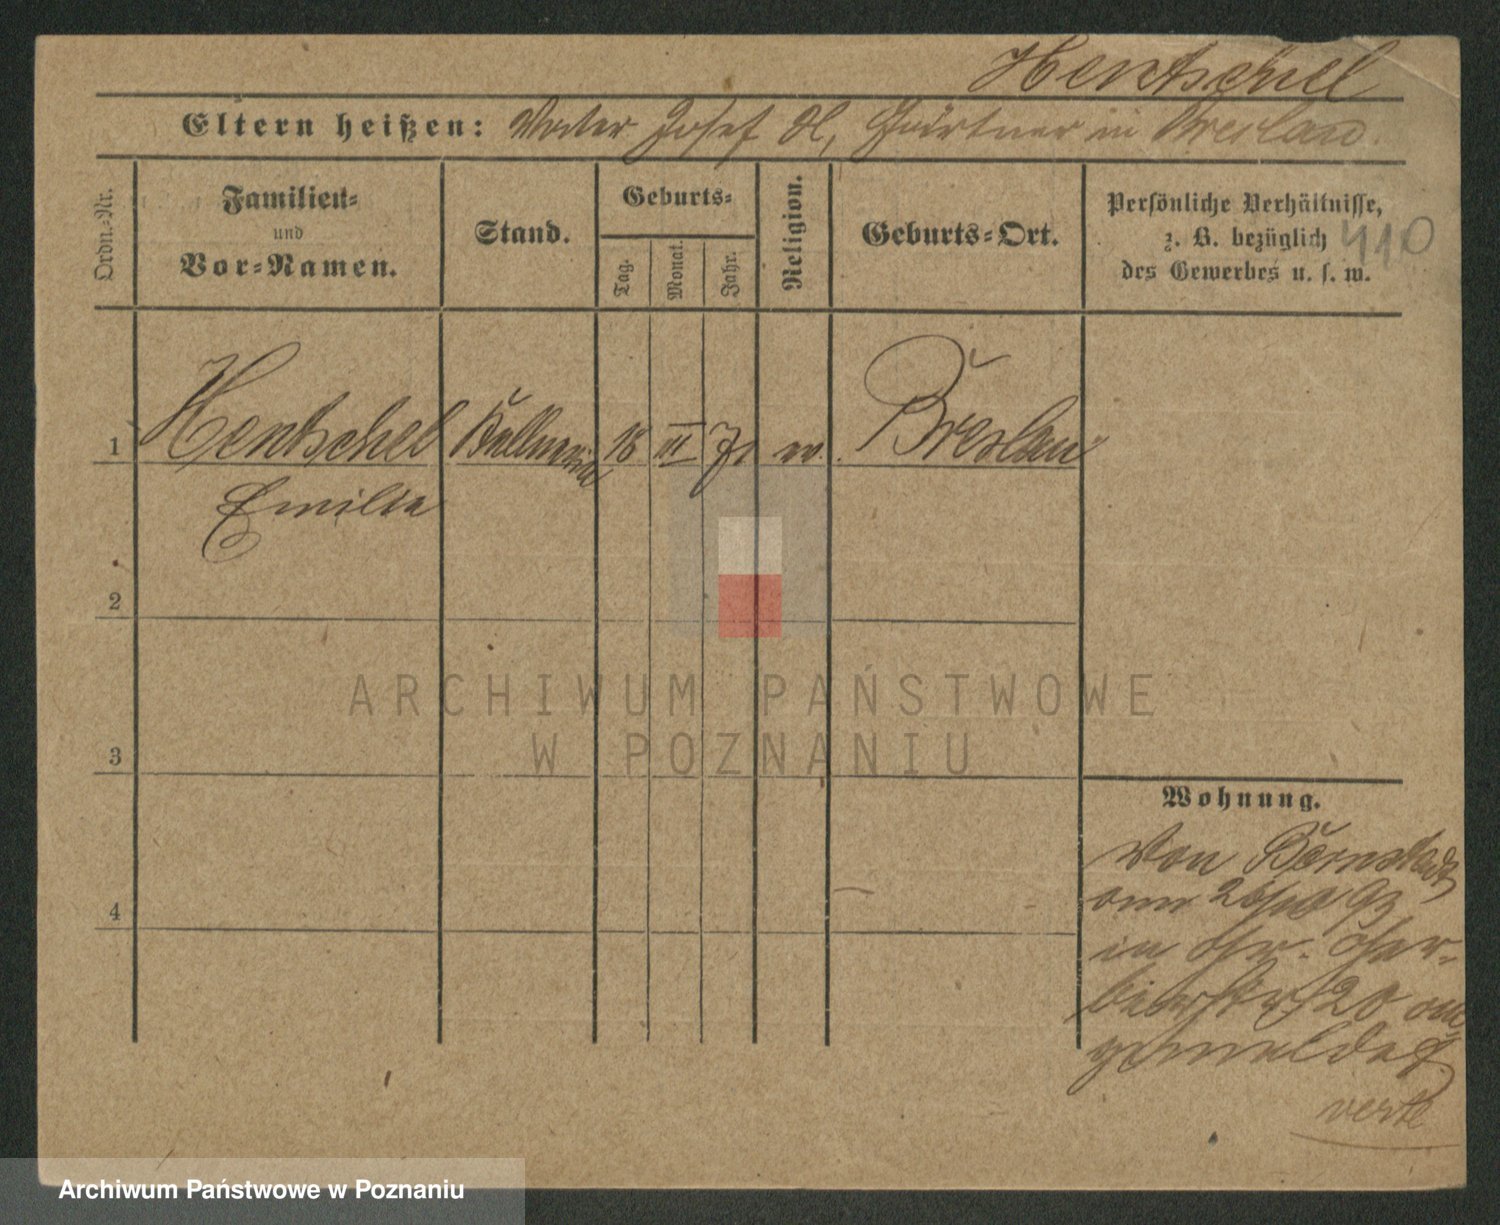 Hentschel
Eltern heißen: Vater Josef H, Gärtner in Breslau.
Ordn.-Nr.
Familien-
und
Vor-Namen.
Stand.
Geburts-
Tag.
Monat.
Jahr.
Religion.
Geburts-Ort.
Persönliche Verhältnisse,
z. B. bezüglich
des Gewerbes u. s. w.
410
1
Hentschel Kellnerin 18 III 71 ev. Breslau
Emilie
2
3
4
ARCHIWUM PAŃSTWOWE
W POZNANIU
Wohnung.
Von Bernstadt
am 26/10 93
in Gr. Ger-
berstr. 20 an
gemeldet.
verte
Archiwum Państwowe w Poznaniu